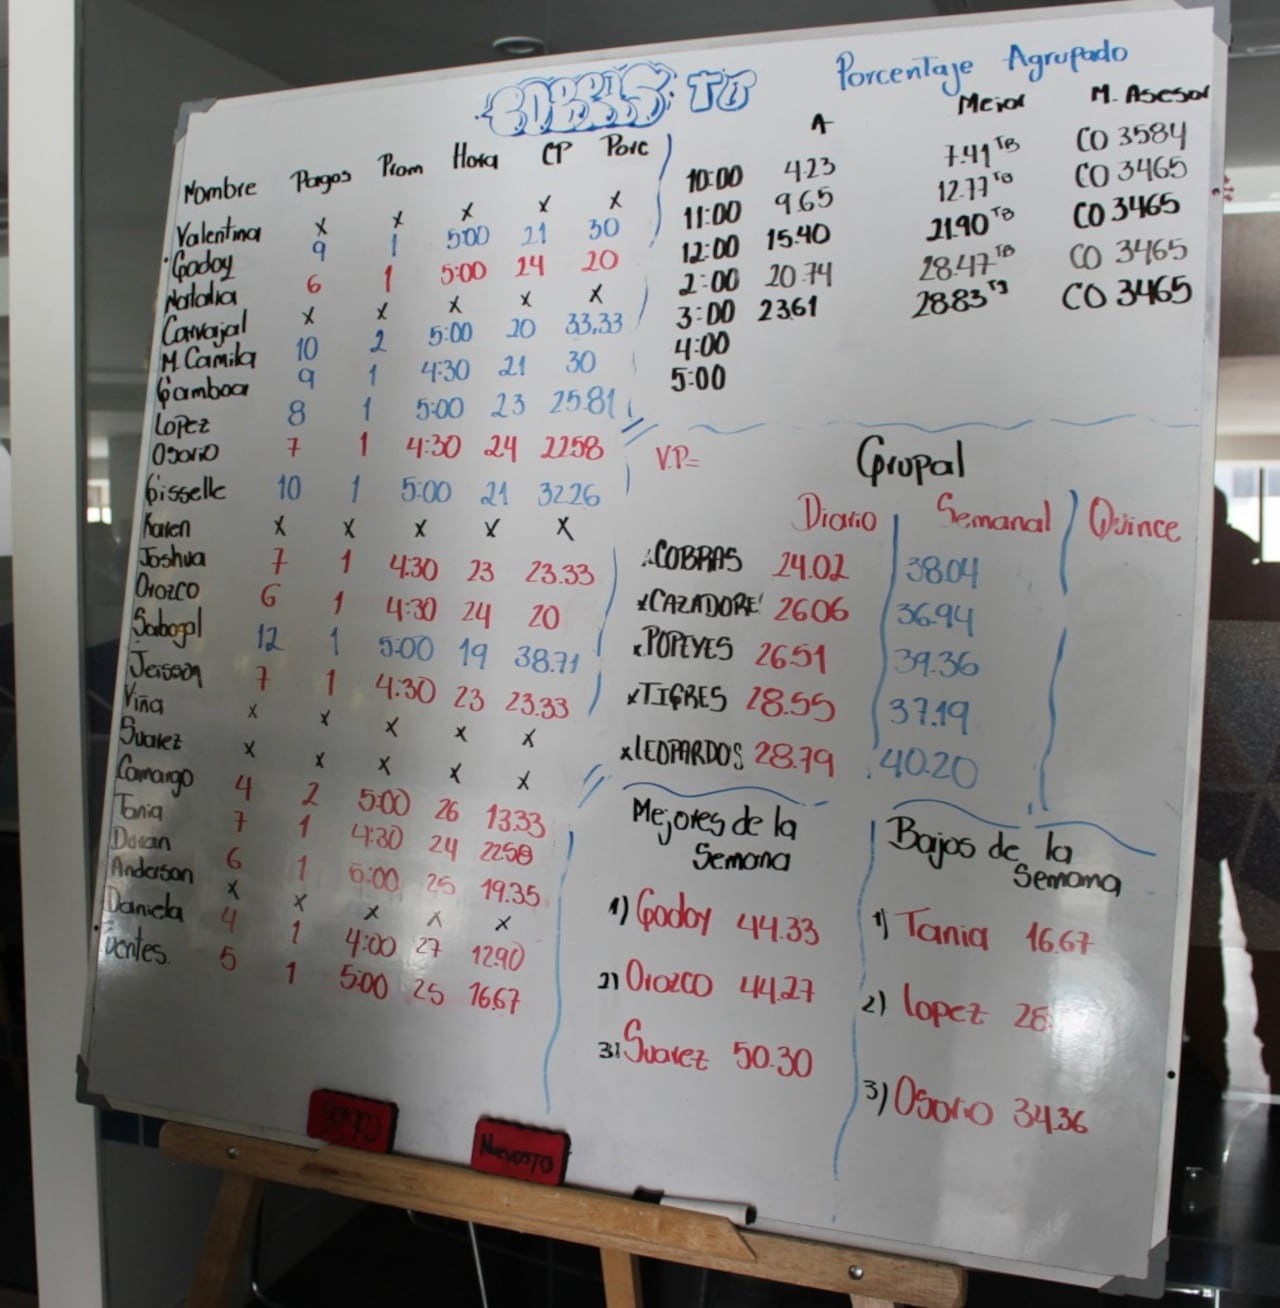 COBRAS TB
Nombre Pagos Prom Hora CP Porc
Valentina x x x x x
Godoy 9 1 5:00 21 30
Natalia 6 1 5:00 24 20
Carvajal x x x x x
M. Camila 10 2 5:00 20 33.33
Gamboa 9 1 4:30 21 30
Lopez 8 1 5:00 23 25.81
Osorio 7 1 4:30 24 2258
Gisselle 10 1 5:00 21 32.26
Karen x x x x x
Joshua 7 1 4:30 23 23.33
Orozco 6 1 4:30 24 20
Sabogal 12 1 5:00 19 38.71
Jeisson 7 1 4:30 23 23.33
Viña x x x x x
Suarez x x x x x
Camargo 4 2 5:00 26 13.33
Tania 7 1 4:30 24 2258
Duran 6 1 5:00 25 19.35
Anderson x x x x x
Daniela 4 1 4:00 27 1290
5 1 5:00 25 16.67
Porcentaje Agrupado
A Mejor M. Asesor
10:00 4.23 7.41 TB CO 3584
11:00 9.65 12.77 TB CO 3465
12:00 15.40 21.90 TB CO 3465
2:00 20.74 28.47 TB CO 3465
3:00 23.61 28.83 TB CO 3465
4:00
5:00
V.P=
Grupal
Diario Semanal Quince
COBRAS 24.02 38.04
x CAZADORE' 26.06 36.94
x POPEYES 26.51 39.36
x TIGRES 28.55 37.19
x LEOPARDOS 28.79 40.20
Mejores de la
Semana
1) Godoy 44.33
2) Orozco 44.27
3) Suarez 50.30
Bajos de la
Semana
1) Tania 16.67
2) Lopez 28
3) Osorio 34.36
NUEVOSTB